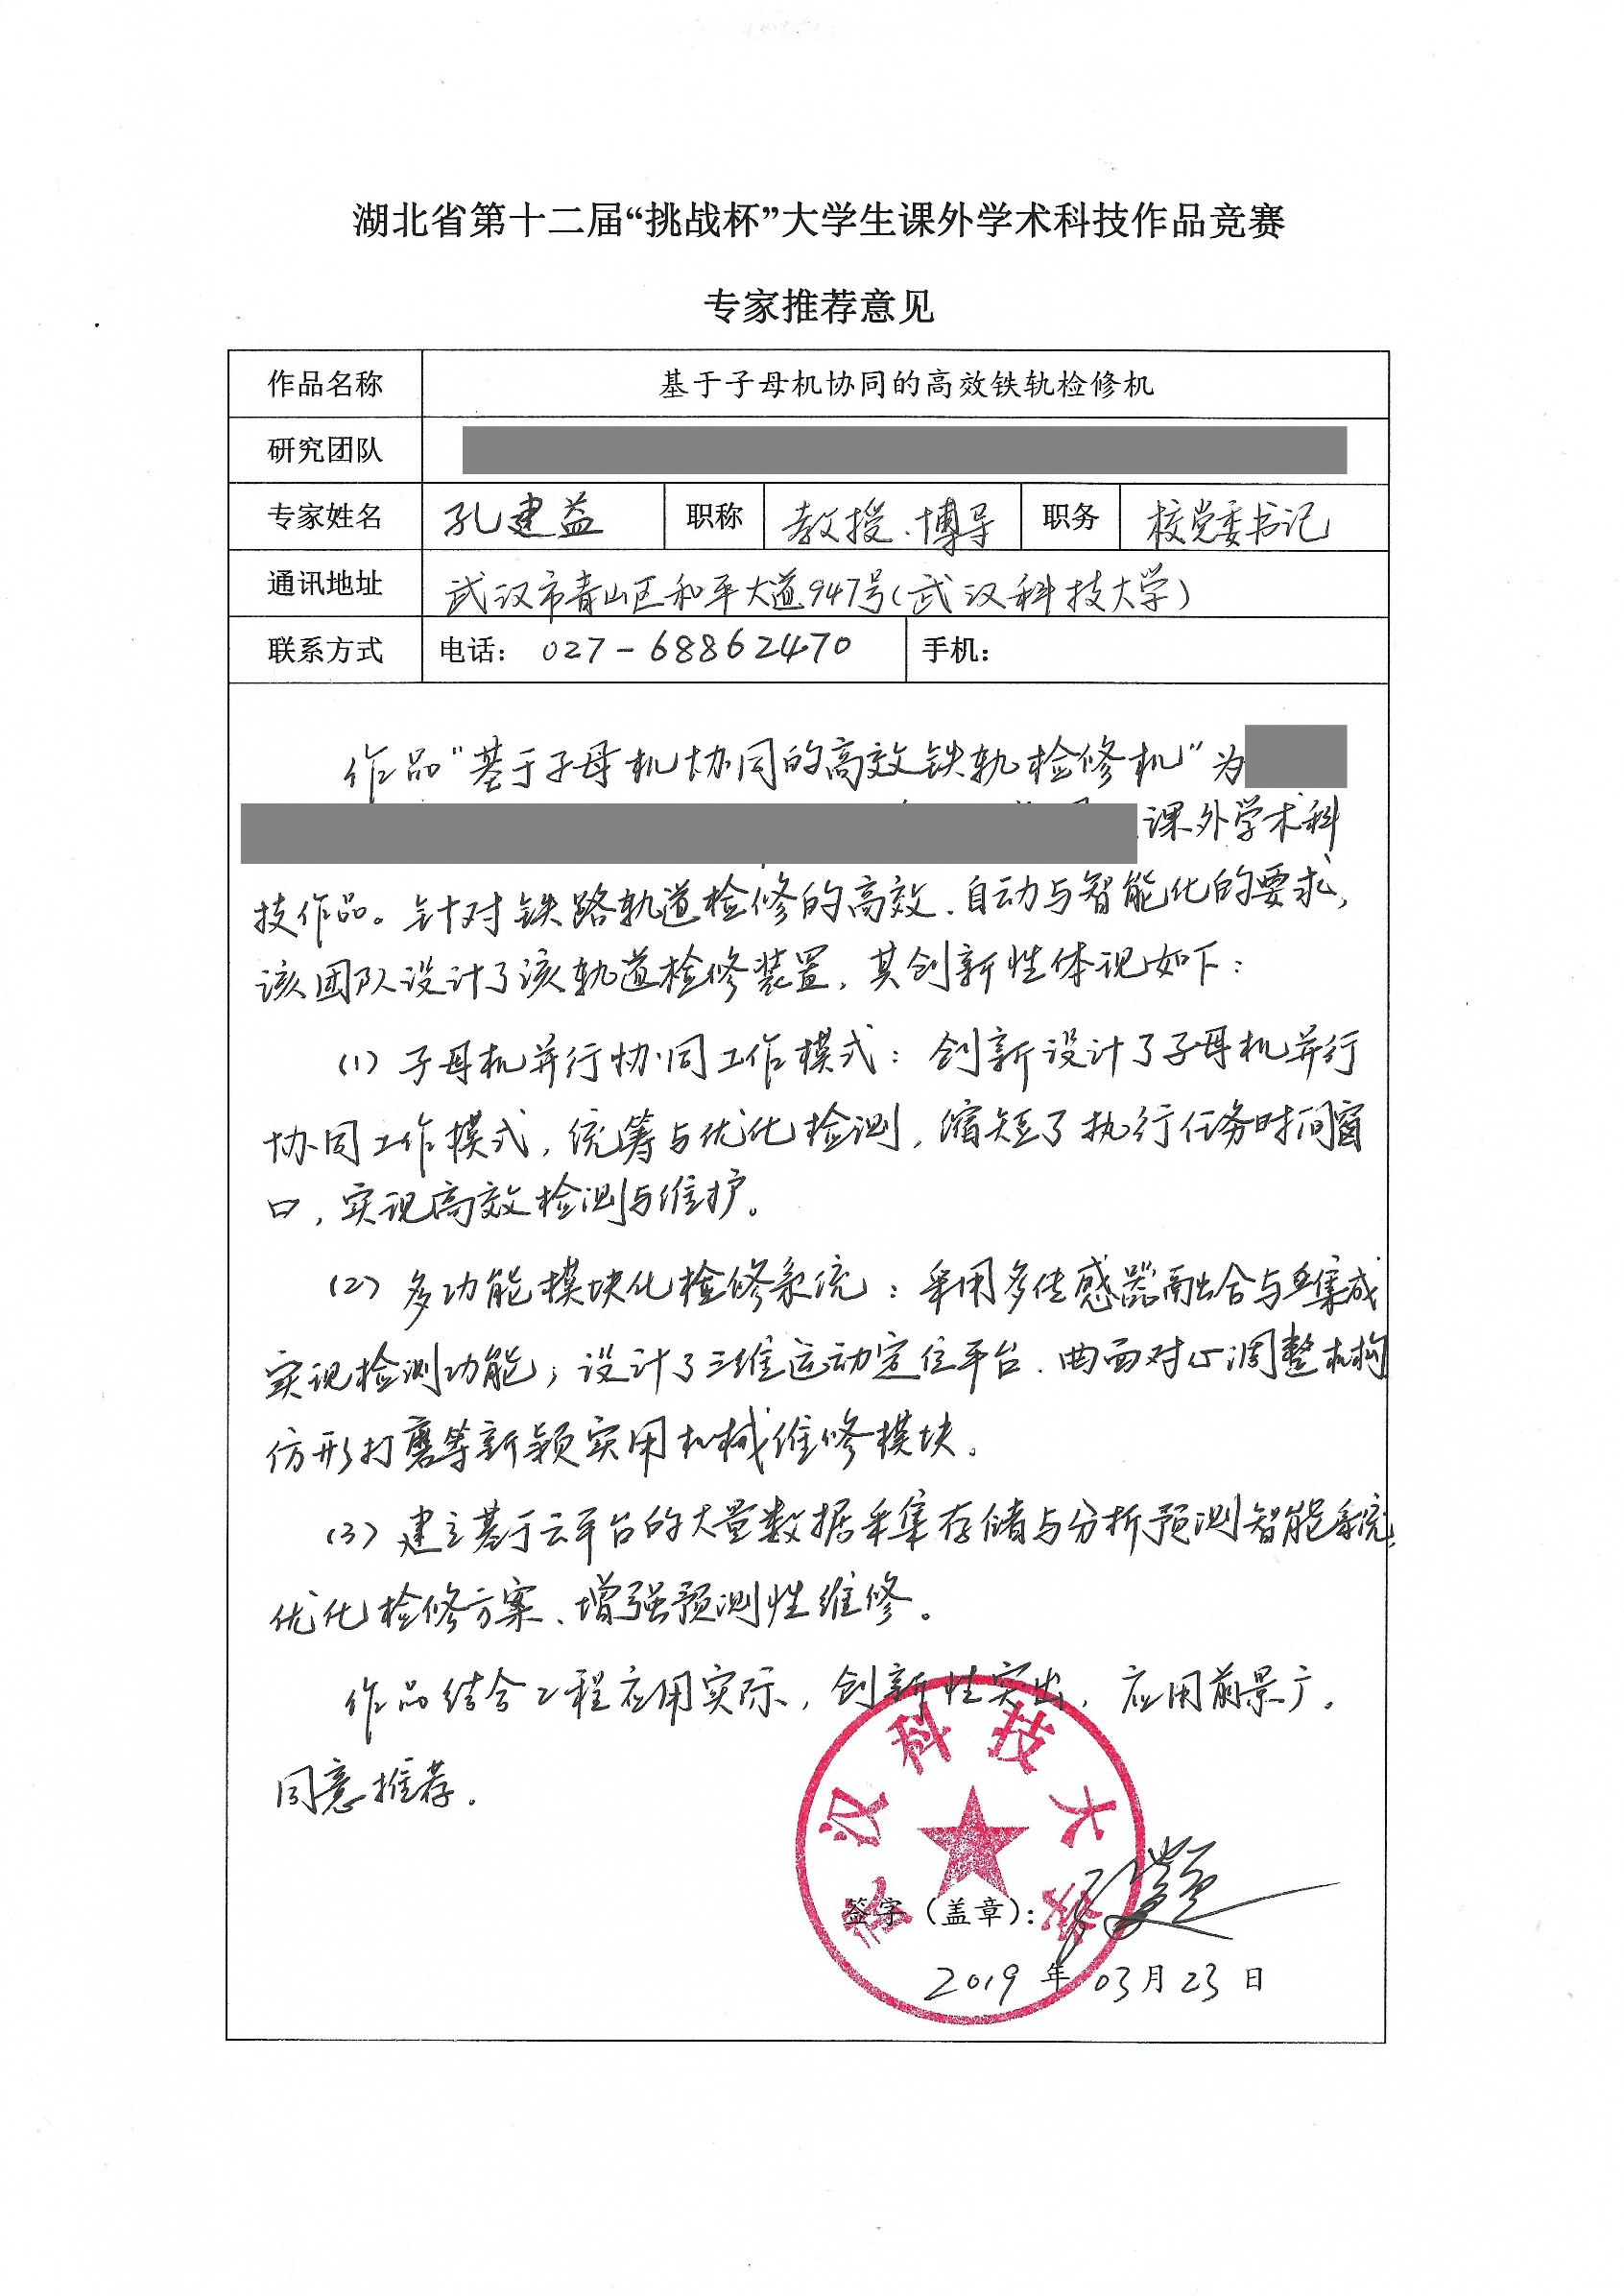 湖北省第十二届“挑战杯”大学生课外学术科技作品竞赛
专家推荐意见
作品名称 基于子母机协同的高效铁轨检修机
研究团队
专家姓名 孔建益 职称 教授、博导 职务 校党委书记
通讯地址 武汉市青山区和平大道947号(武汉科技大学)
联系方式 电话: 027-68862470 手机:
作品“基于子母机协同的高效铁轨检修机”为
课外学术科
技作品。针对铁路轨道检修的高效、自动与智能化的要求,
该团队设计了该轨道检修装置,其创新性体现如下:
(1) 子母机并行协同工作模式: 创新设计了子母机并行
协同工作模式,统筹与优化检测,缩短了执行任务时间窗
口,实现高效检测与维护。
(2) 多功能模块化检修系统: 采用多传感器融合与集成
实现检测功能;设计了三维运动定位平台、曲面对心调整机构
仿形打磨等新颖实用机械维修模块。
(3) 建立基于云平台的大量数据采集存储与分析预测智能系统,
优化检修方案、增强预测性维修。
作品结合工程应用实际,创新性突出,应用前景广。
同意推荐。
武汉科技大学
签字(盖章):
2019 年 03 月 23 日